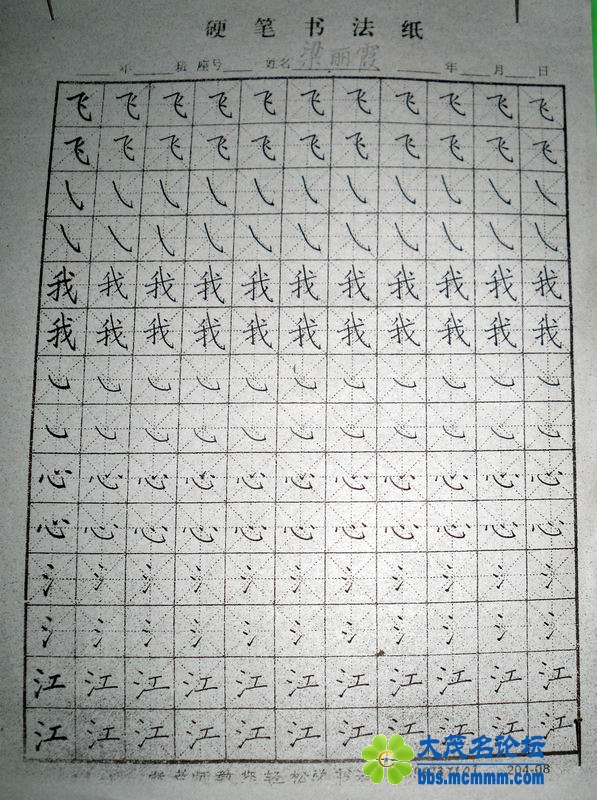 硬笔书法纸
年 班 座号 姓名 梁丽霞 年 月 日
飞飞飞飞飞飞飞飞飞飞飞
飞飞飞飞飞飞飞飞飞飞飞
㇂㇂㇂㇂㇂㇂㇂㇂㇂㇂㇂
㇂㇂㇂㇂㇂㇂㇂㇂㇂㇂㇂
我我我我我我我我我我我
我我我我我我我我我我我
㇃㇃㇃㇃㇃㇃㇃㇃㇃㇃㇃
㇃㇃㇃㇃㇃㇃㇃㇃㇃㇃㇃
心心心心心心心心心心心
心心心心心心心心心心心
氵氵氵氵氵氵氵氵氵氵氵
氵氵氵氵氵氵氵氵氵氵氵
江江江江江江江江江江江
江江江江江江江江江江江
老师教您轻松学 204-08
大茂名论坛
bbs.mcmmm.com